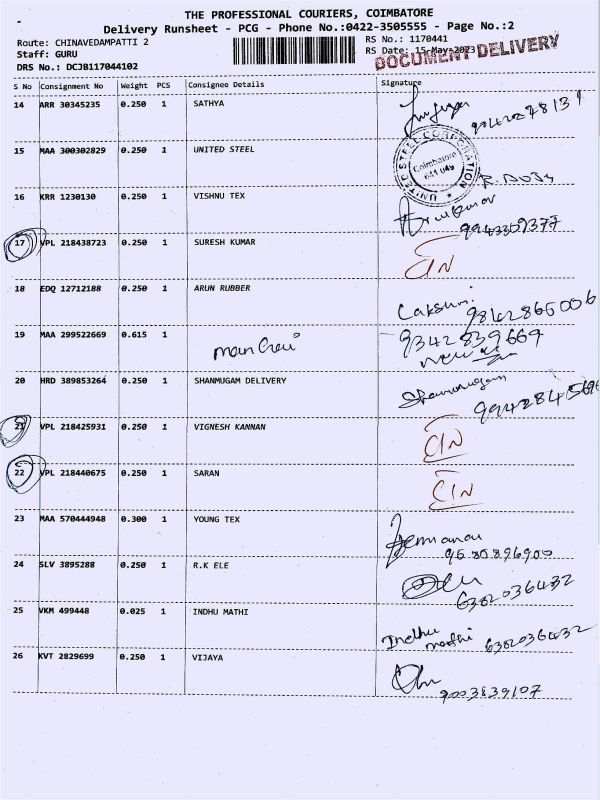 THE PROFESSIONAL COURIERS, COIMBATORE
Delivery Runsheet - PCG - Phone No.:0422-3505555 - Page No.:2
Route: CHINAVEDAMPATTI 2
RS No.: 1170441
Staff: GURU
RS Date: 15-May-2023
DOCUMENT DELIVERY
DRS No.: DCJB117044102
S No Consignment No Weight PCS Consignee Details Signature
14 ARR 30345235 0.250 1 SATHYA
15 MAA 300302829 0.250 1 UNITED STEEL
UNITED STEEL CORPORATION
Coimbatore
641 049
16 KRR 1230130 0.250 1 VISHNU TEX
9943309377
17 VPL 218438723 0.250 1 SURESH KUMAR
18 EDQ 12712188 0.250 1 ARUN RUBBER
9842866006
19 MAA 299522669 0.615 1
9342839669
20 HRD 389853264 0.250 1 SHANMUGAM DELIVERY
Shanmugam
21 VPL 218425931 0.250 1 VIGNESH KANNAN
22 VPL 218440675 0.250 1 SARAN
23 MAA 570444948 0.300 1 YOUNG TEX
24 SLV 3895288 0.250 1 R.K ELE
6382036432
25 VKM 499448 0.025 1 INDHU MATHI
Indhu mathi 6382036432
26 KVT 2829699 0.250 1 VIJAYA
9003839107